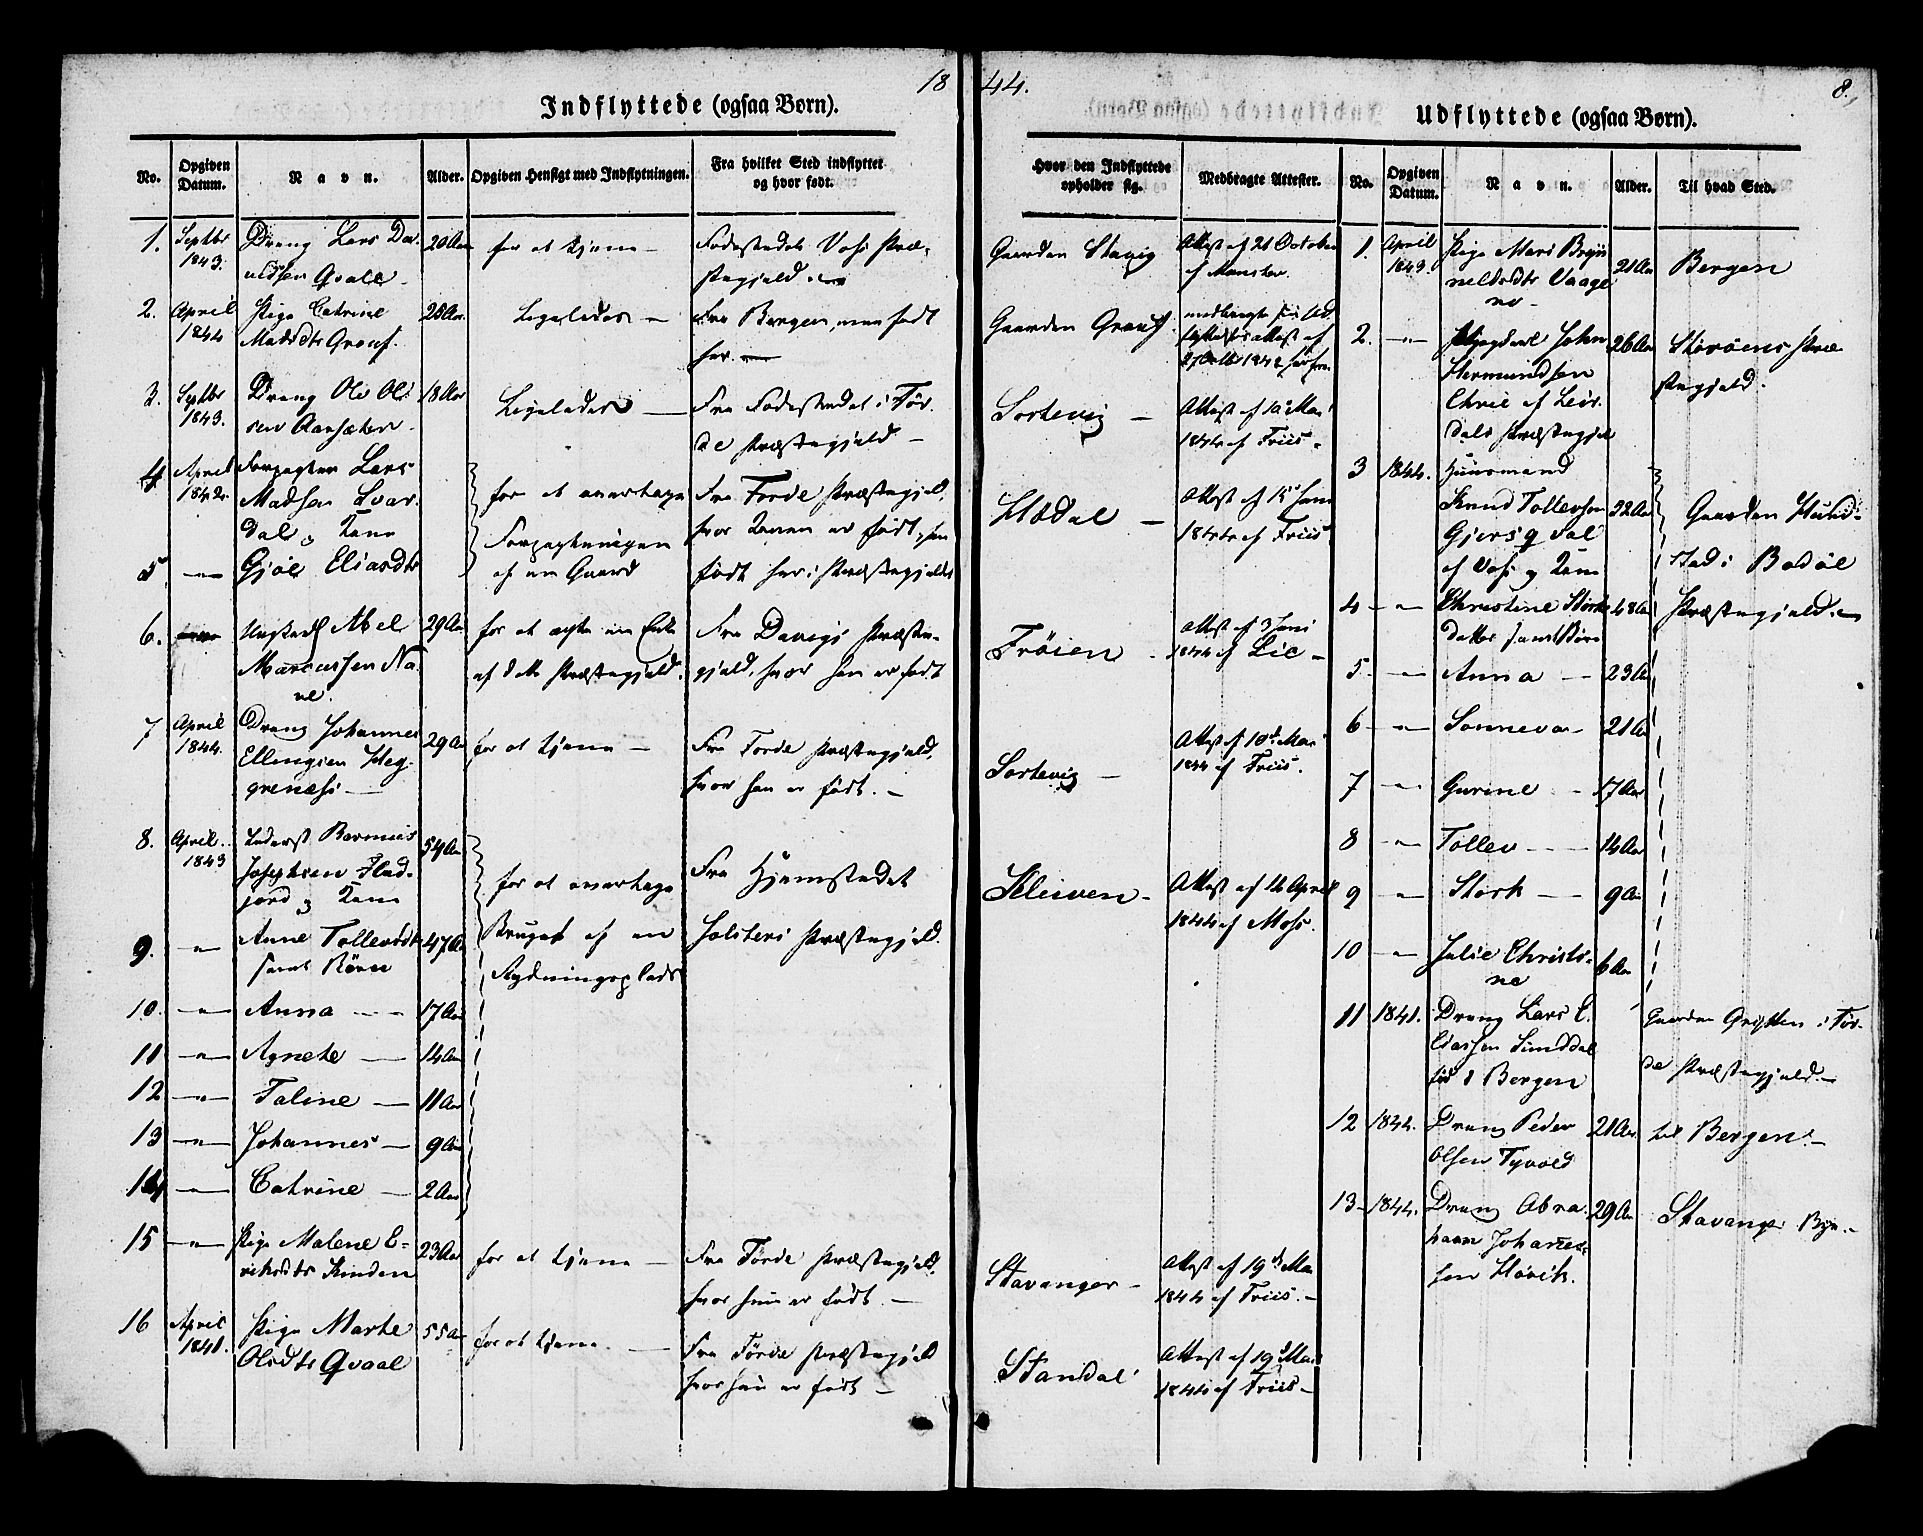 18
Indflyttede (ogsaa Børn).
No.
Opgiven Datum.
Navn.
Alder.
Opgiven Hensigt med Indflytningen.
Fra hvilket Sted indflyttet og hvor født.
1. Septbr 1843. Dreng Lars 20 Aar for at tjene — Fødestedet Vos Præ-
stegjeld.
2. April 1844 Pige Catrine 28 Aar Ligeledes — Fra Bergen, men født
Madsdtr Grouf. her. —
3. Septbr 1843. Dreng Ole Ol- 18 Aar Ligeledes — Fra Fødestedet i Før-
sen de Præstegjeld —
4 April Forpagter Lars for at overtage Fra Førde Præstegjeld,
Madsen Svar- Forpagtningen hvor Konen er født, han
dal og Kone af en Gaard født her i Præstegjeldet
5. — " — Gjøe Eliasdtr
6. Ungkarl Abel 29 Aar for at ægte en Enke Fra Davigs Præste-
Marcussen Na- af dette Præstegjeld. gjeld, hvor han er født
ve.
7 April 1844. Dreng Johannes 29 Aar for at tjene — Fra Førde Præstegjeld,
Ellingsen Heg- hvor han er født. —
grenæs —
8. April 1843 Inderst Rasmus 54 Aar for at overtage Fra Hjemstedet
Josephsen Flad- Bruget af en Jølsters Præstegjeld.
jord og Kone Rydningsplads
9. — " — Anne Tollevsdtr 47 Aar
samt Børn
10. — " — Anna — 17 Aar
11 — " — Agnete — 14 Aar
12 — " — Taline — 11 Aar
13 — " — Johannes — 9 Aar
14 — " — Catrine — 2 Aar
15 — " — Pige Malene E- 23 Aar for at tjene — Fra Førde Præstegjeld,
riksdtr Kinden hvor hun er født. —
16 April 1841. Pige Marte 55 Aar for at tjene. — Fra Førde Præstegjeld
Olsdtr Qvaal hvor hun er født —
44.
8.
Udflyttede (ogsaa Børn).
Hvor den Indflyttede opholder sig.
Medbragte Attester.
No.
Opgiven Datum.
Navn.
Alder.
Til hvad Sted.
Gaarden Stavig Attest af 21 October
af Munster.
Gaarden Grouf.
Sortevig — Attest af 10de Mai
1844 af Friis.
Hødal — Attest af 15 Juni
1844 af Friis
Frøien — Attest af 3 Juni
1844 af Lie —
Sortevig — Attest af 10de Mai
1844 af Friis.
Kleiven — Attest af 14 April
1844 af Moss.
Stavanger — Attest af 19de Mai
1844 af Friis. —
Standal Attest af 19de Mai
1844 af Friis —
1. April 1843. Pige Mari Bryn- 21 Aar Bergen
nelsdtr Vaage
2. — " — John 26 Aar Størøens Præ-
Hermundsen stegjeld.
af Leir-
dals Præstegjeld
3 1844. Huusmand
Knud Tollevsen 52 Aar Gaarden Hund-
stad i Bodøe
af Vos og Kone
4 — " — Christine Størks- 48 Aar Præstegjeld. —
datter samt Børn
5. — " — Anna — 23 Aar
6 — " — Sonneva — 21 Aar
7 — " — Gurine — 17 Aar
8 — " — Tollev — 14 Aar
9 — " — Størk — 9 Aar
10 — " — Julie Christi- 6 Aar
ne
11 1841. Dreng Lars E- Gaarden i Før-
liassen Sunddal de Præstegjeld. —
Bergen
12 1844. Dreng Peder 21 Aar til Bergen. —
Olsen Tyvold
13 — 1844. Dreng Abra- 29 Aar Stavanger Bye. —
ham Johannes-
sen Høvik.